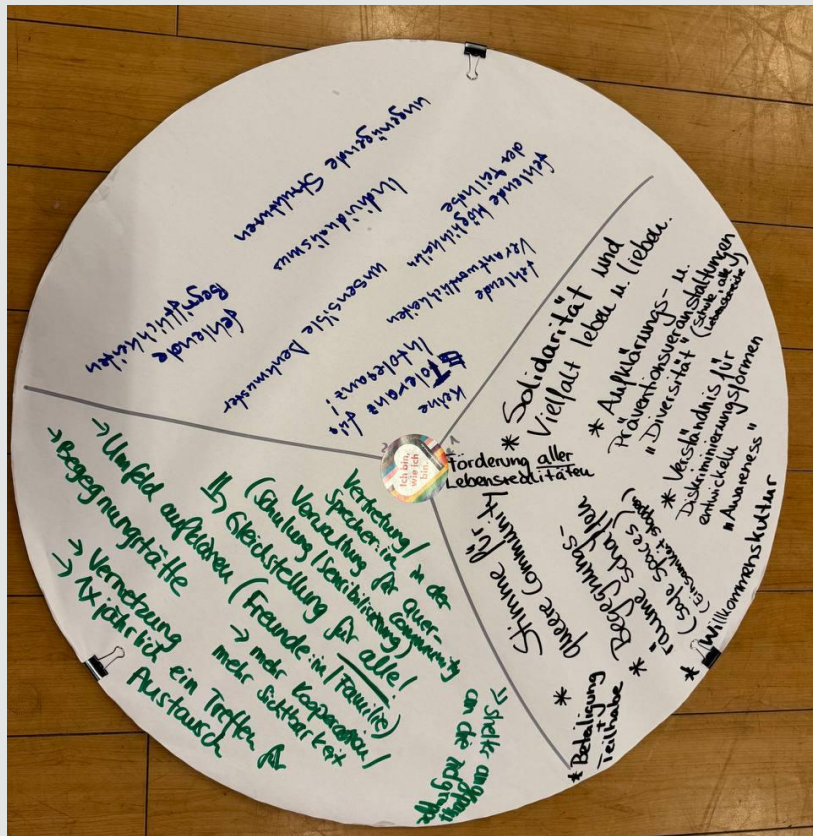 ungenügende Strukturen
Individualismus
fehlende Möglichkeiten
der Teilhabe
fehlende
Verantwortlichkeiten
unsensible Denkmuster
fehlende
Begrifflichkeiten
keine
Toleranz für
Intoleganz!
2
1
Ich bin,
wie ich
bin.
Förderung aller
Lebensrealitäten
* Solidarität und
Vielfalt leben u. lieben.
* Aufklärungs- u.
Präventionsveranstaltungen
"Diversität" (Schule, alle
Lebensbereiche)
* Verständnis für
Diskriminierungsformen
entwickeln
"Awareness"
* Willkommenskultur
Stimme für
queere Community
* Begegnungs-
räume schaffen
(Safe Spaces)
(Einsamkeit stoppen)
* Betailigung
+
Teilhabe
Vertretung/
Sprecher:in in der
Verwaltung für queer-
community
(Schulung/Sensibilisierung)
↳ Gleichstellung für alle!
→ Umfeld aufklären (Freunde:in/Familie)
→ Begegnungstätte
→ mehr Kooperation/
mehr Sichtbarkeit
→ Vernetzung
→ 1x jährlich ein Treffen für
Austausch
→
an die